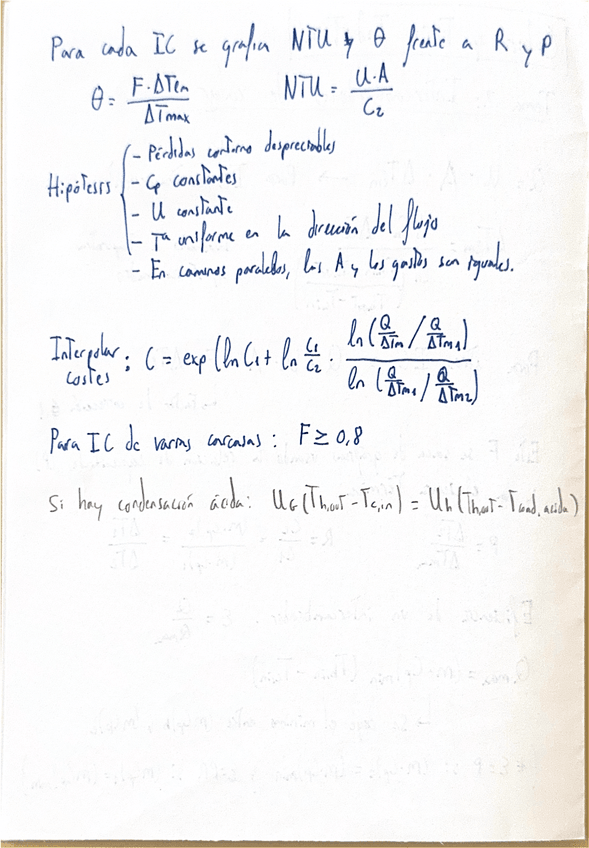 Para cada IC se grafica NTU y θ frente a R y P
θ = F·ΔTlm / ΔTmax    NTU = U·A / C2
Hipótesis { - Pérdidas contorno despreciables
- Cp constantes
- U constante
- Tª uniforme en la dirección del flujo
- En caminos paralelos, las A y los gastos son iguales.
Interpolar costes : C = exp (ln C1 + ln C1/C2 · ln (Q/ΔTm / Q/ΔTm1) / ln (Q/ΔTm1 / Q/ΔTm2)
Para IC de varias carcasas : F ≥ 0,8
Si hay condensación ácida: UG (Th,out - Tc,in) = Uh (Th,out - Tcond, acida)